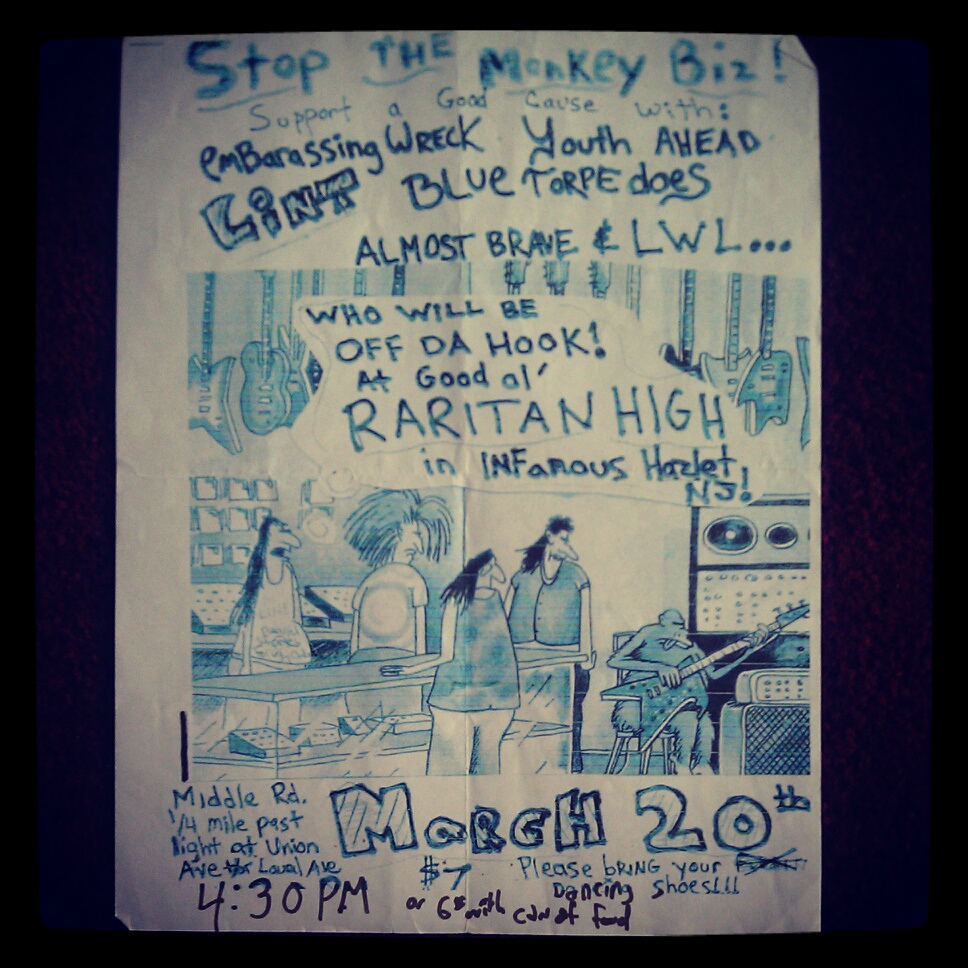 Stop THE Monkey Biz!
Support a Good Cause with:
emBarassing WRECK Youth AHEAD
LiNT BLUe TORPEdoes
ALMOST BRAVE & LWL...
WHO WILL BE
OFF DA HOOK!
At Good ol'
RARITAN HIGH
in INFamous Hazlet,
NJ!
Middle Rd.
1/4 mile past
light at Union
Ave
March 20th
$7
Please bRING your
Dancing Shoes!!!
4:30 PM
or 6$ with can of food